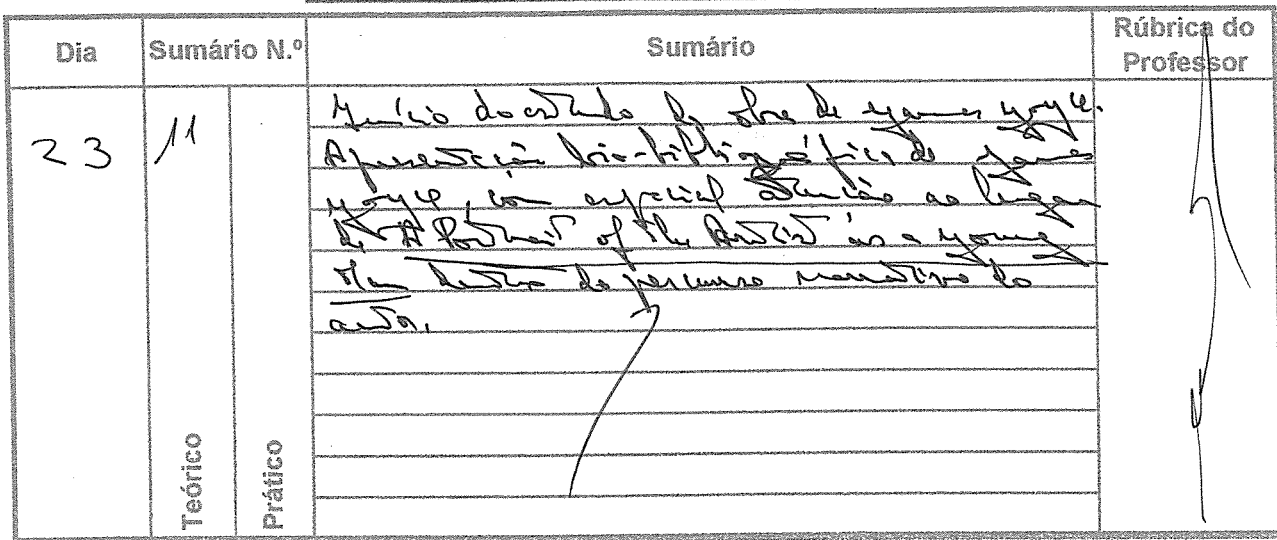 Dia Sumário N.º Sumário Rúbrica do Professor
23 11
Início do estudo da obra de James Joyce.
Apresentação bio-bibliográfica de James
Joyce, com especial atenção ao lugar
de A Portrait of the Artist as a Young
Man dentro do percurso narrativo do
autor.
Teórico
Prático